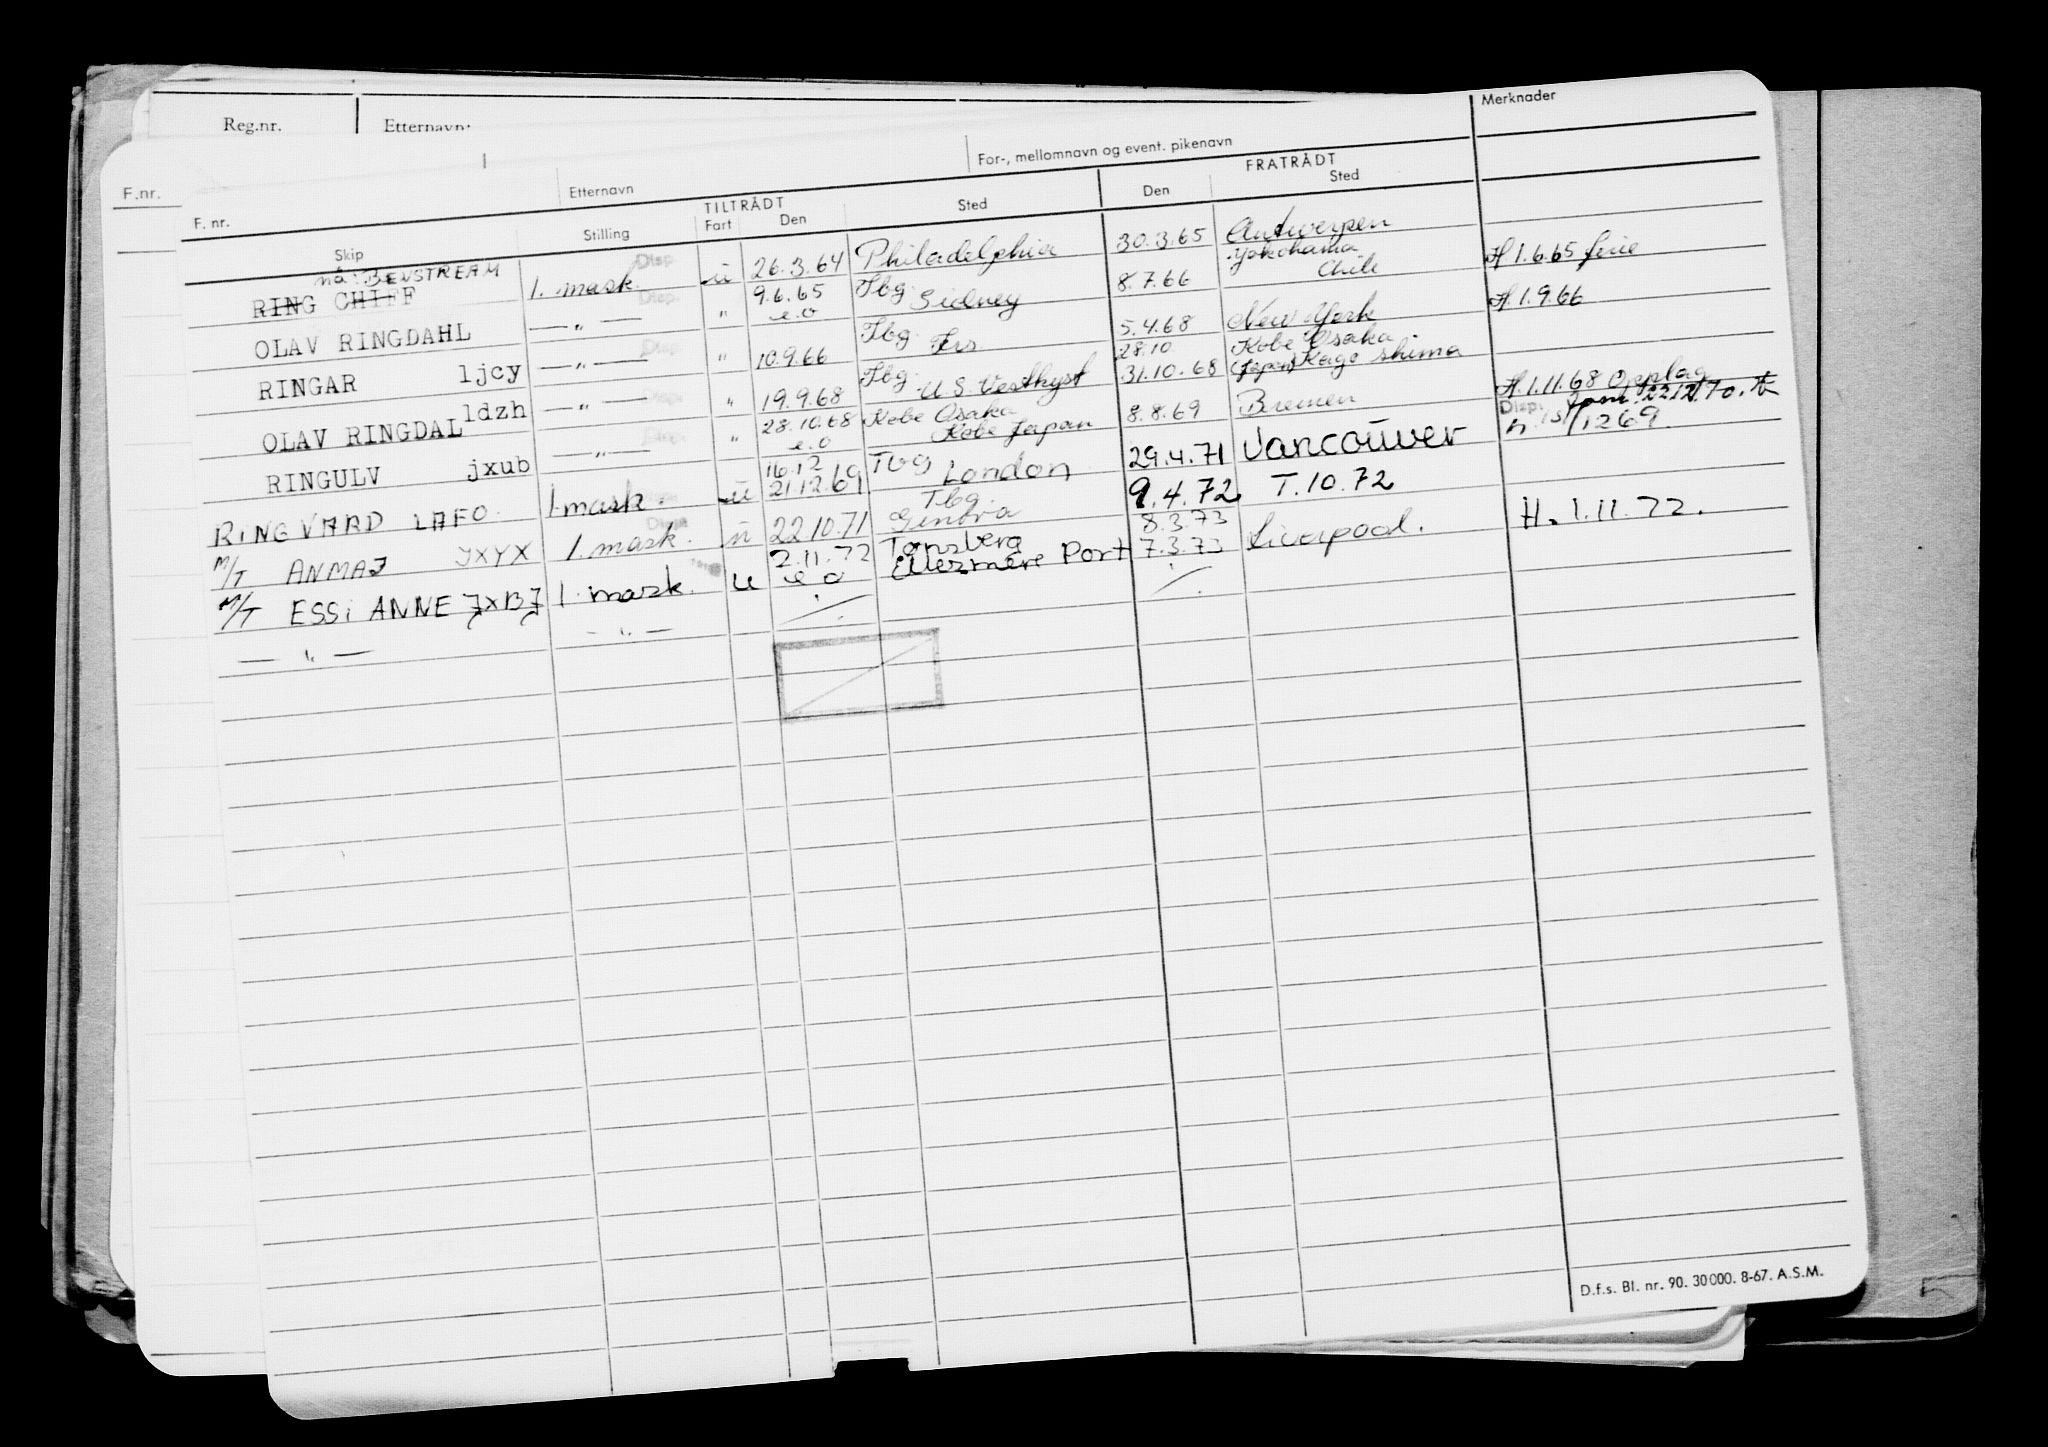 Merknader
Reg.nr. Etternavn:
For-, mellomnavn og event. pikenavn
F.nr. Etternavn
F. nr. TILTRÅDT FRATRÅDT
Skip Stilling Fart Den Sted Den Sted
nå: BENSTREAM
RING CHIEF 1. mask. Disp. u 26.3.64 Philadelphia 30.3.65 Antwerpen H 1.6.65 ferie
OLAV RINGDAHL — " — Disp. " 9.6.65 e.o Tbg. Sidney 8.7.66 Yokohama Chile H. 1.9.66
RINGAR ljcy — " — Disp. " 10.9.66 Tbg. 5.4.68 New York
OLAV RINGDAL ldzh — " — Disp. " 19.9.68 Tbg. U.S. Vestkyst 28.10 31.10.68 Kobe Osaka (Japan) Kago shima H. 1.11.68 Opplag
RINGULV jxub — " — Disp. " 28.10.68 e.o Kobe Osaka Kobe Japan 8.8.69 Bremen Disp.
RINGVARD LAFO 1 mask. u 16.12 21.12.69 Tbg London 29.4.71 Vancouver
M/T ANMAJ JXYX 1. mask. u 22.10.71 Tbg. Genova 9.4.72 T.10.72
M/T ESSI ANNE JXBJ 1. mask. u 2.11.72 e o Tønsberg Ellesmere Port 8.3.73 7.3.73 Liverpool. H. 1.11.72.
— " — - " — ./. ./.
D.f.s. Bl. nr. 90. 30000. 8-67. A.S.M.